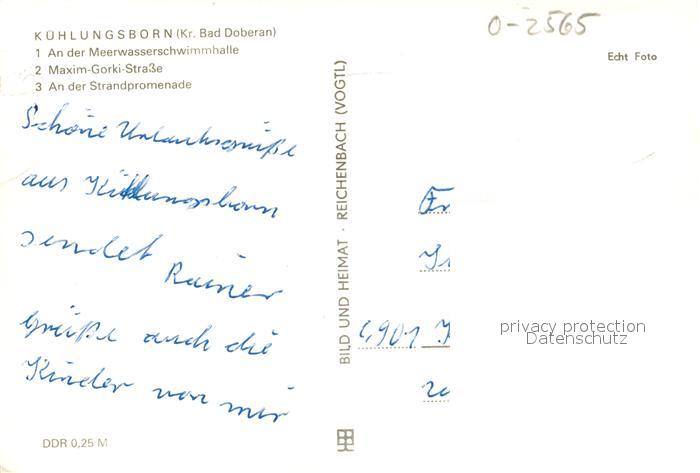 O-2565
KÜHLUNGSBORN (Kr. Bad Doberan)
1 An der Meerwasserschwimmhalle
2 Maxim-Gorki-Straße
3 An der Strandpromenade
Echt Foto
Schöne Urlaubsgrüße
aus Kühlungsborn
sendet
Rainer
Grüße auch die
Kinder von mir
BILD UND HEIMAT · REICHENBACH (VOGTL)
Fr
privacy protection
Datenschutz
DDR 0,25 M